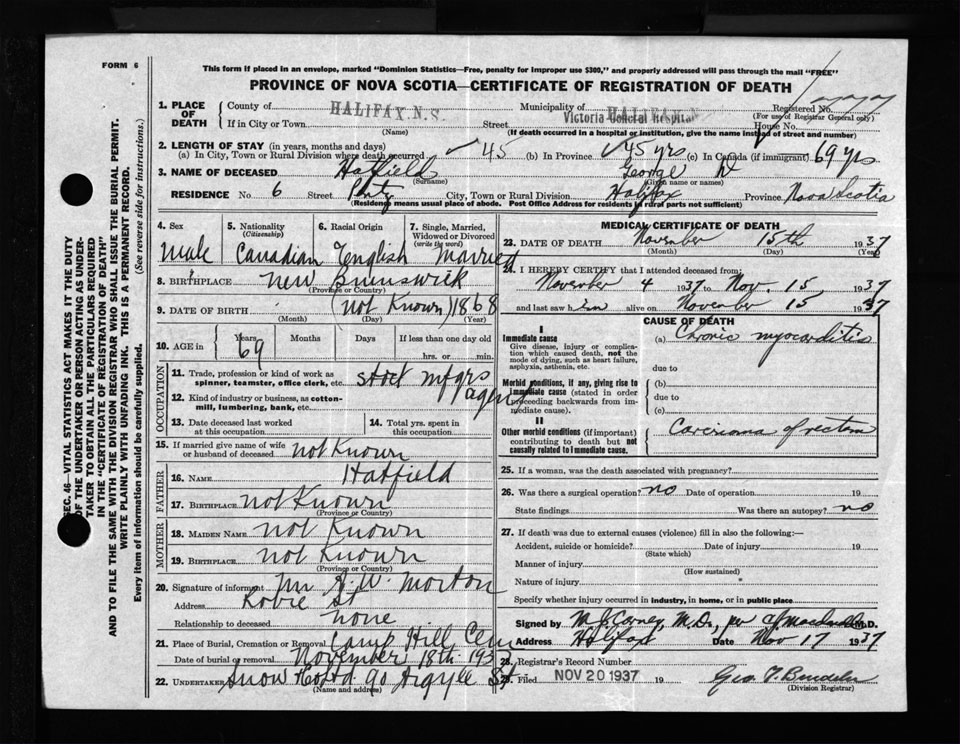 FORM 6
This form if placed in an envelope, marked "Dominion Statistics—Free, penalty for improper use $300," and properly addressed will pass through the mail "FREE"
PROVINCE OF NOVA SCOTIA—CERTIFICATE OF REGISTRATION OF DEATH
1. PLACE OF DEATH
County of HALIFAX, N.S. Municipality of HALIFAX, N.S. Registered No.
(For use of Registrar General only)
If in City or Town Street Victoria General Hospital House No.
(Name) (If death occurred in a hospital or institution, give the name instead of street and number)
2. LENGTH OF STAY (in years, months and days)
(a) In City, Town or Rural Division where death occurred 45 (b) In Province 45 yrs (c) In Canada (if immigrant) 69 yrs
3. NAME OF DECEASED Hatfield George
(Surname) (Given name or names)
RESIDENCE No 6 Street City, Town or Rural Division Halifax Province Nova Scotia
(Residency means usual place of abode. Post Office Address for residents in rural parts not sufficient)
4. Sex 5. Nationality (Citizenship) 6. Racial Origin 7. Single, Married, Widowed or Divorced (write the word)
Male Canadian English Married
8. BIRTHPLACE New Brunswick
(Province or Country)
9. DATE OF BIRTH (not Known) 1868
(Month) (Day) (Year)
10. AGE in Years Months Days If less than one day old
69 hrs. or min.
OCCUPATION
11. Trade, profession or kind of work as spinner, teamster, office clerk, etc. stock mfgrs agent
12. Kind of industry or business, as cotton-mill, lumbering, bank, etc.
13. Date deceased last worked at this occupation 14. Total yrs. spent in this occupation
15. If married give name of wife or husband of deceased not Known
FATHER
16. NAME Hatfield
17. BIRTHPLACE not Known
(Province or Country)
MOTHER
18. MAIDEN NAME not Known
19. BIRTHPLACE not Known
(Province or Country)
20. Signature of informant W. Morton
Address Robie St
Relationship to deceased none
21. Place of Burial, Cremation or Removal Camp Hill Cem
Date of burial or removal November 18th 193
22. UNDERTAKER Snow & Co Ltd 90 Argyle St
(Name and address)
MEDICAL CERTIFICATE OF DEATH
23. DATE OF DEATH November 15th 1937
(Month) (Day) (Year)
24. I HEREBY CERTIFY that I attended deceased from:
November 4 1937 to Nov. 15 1937
and last saw him alive on November 15 1937
CAUSE OF DEATH
I
Immediate cause
Give disease, injury or complication which caused death, not the mode of dying, such as heart failure, asphyxia, asthenia, etc.
(a) Chronic myocarditis
due to
Morbid conditions, if any, giving rise to immediate cause (stated in order proceeding backwards from immediate cause).
(b)
due to
(c)
II
Other morbid conditions (if important) contributing to death but not causally related to immediate cause.
Carcinoma of rectum
25. If a woman, was the death associated with pregnancy?
26. Was there a surgical operation? no Date of operation 19
State findings Was there an autopsy? no
27. If death was due to external causes (violence) fill in also the following:—
Accident, suicide or homicide? Date of injury 19
(State which)
Manner of injury
(How sustained)
Nature of injury
Specify whether injury occurred in industry, in home, or in public place
Signed by M. J. Carney, M.D., per M.D.
Address Halifax Date Nov 17 1937
28. Registrar's Record Number
29. Filed NOV 20 1937 19
(Division Registrar)
SEC. 46—VITAL STATISTICS ACT MAKES IT THE DUTY
OF THE UNDERTAKER OR PERSON ACTING AS UNDER-
TAKER TO OBTAIN ALL THE PARTICULARS REQUIRED
IN THE "CERTIFICATE OF REGISTRATION OF DEATH"
AND TO FILE THE SAME WITH THE DIVISION REGISTRAR WHO SHALL ISSUE THE BURIAL PERMIT.
WRITE PLAINLY WITH UNFADING INK. THIS IS A PERMANENT RECORD.
Every item of information should be carefully supplied. (See reverse side for instructions.)